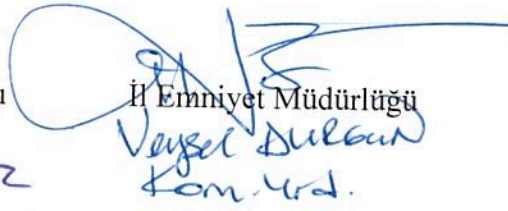 ı İl Emniyet Müdürlüğü
Veysel DURGUN
z Kom. Yrd.